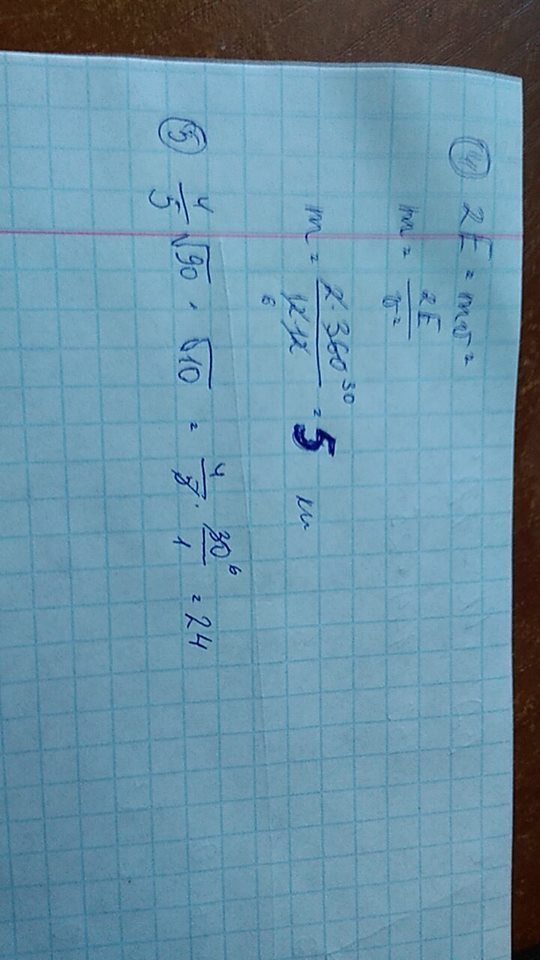 ④ 2E = mv²
m = 2E/v²
m = 2·360³⁰/12·12 = 5
6
⑤ 4/5 √90 · √10 = 4/5 · 30⁶/1 = 24